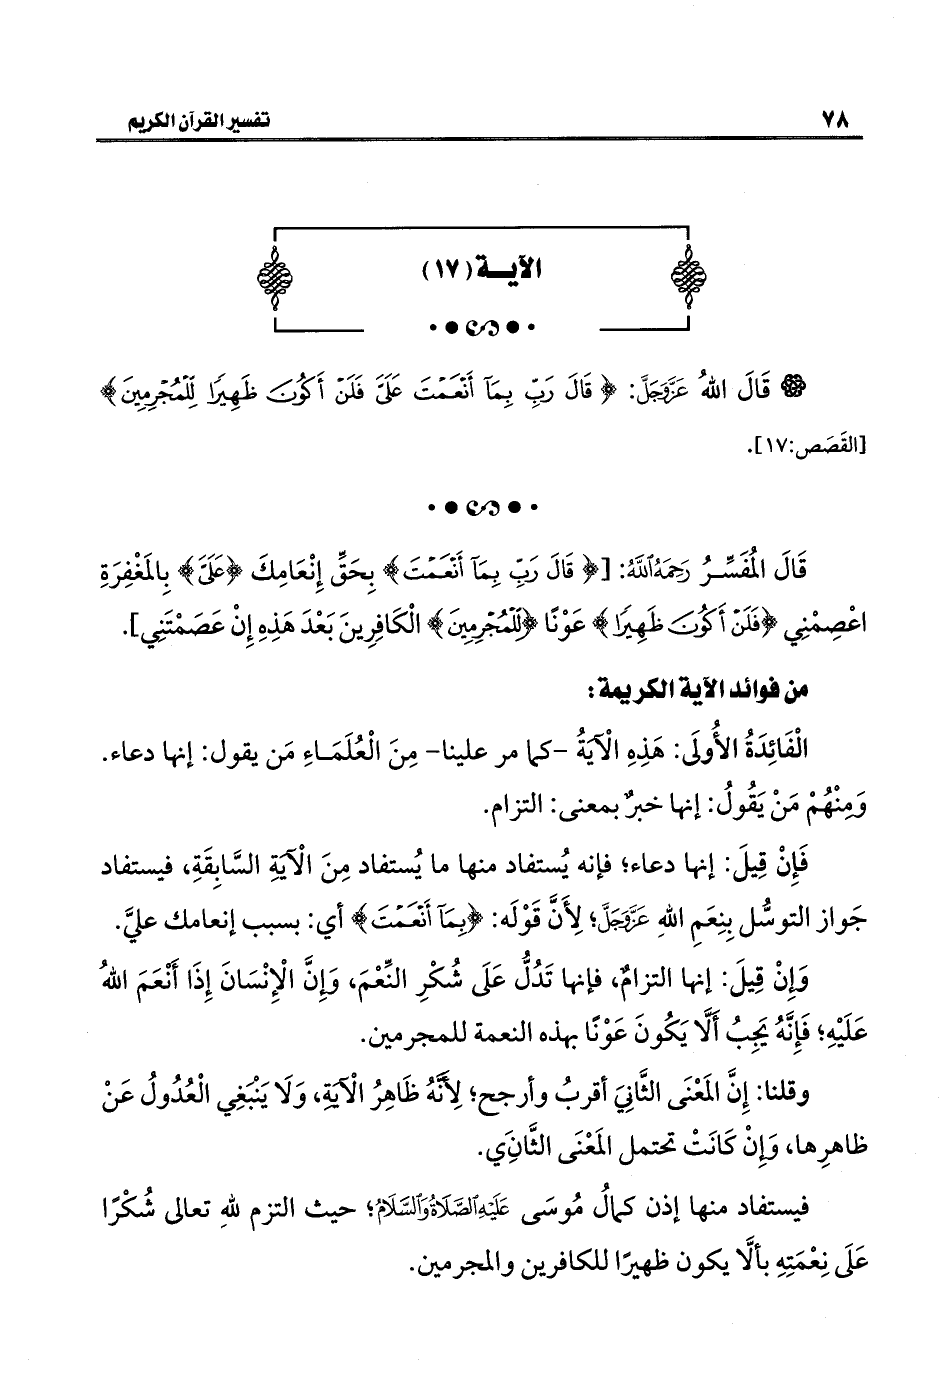 ٧٨
تفسير القرآن الكريم
الآيــة (١٧)
قَالَ اللهُ عَزَّوَجَلَّ: ﴿قَالَ رَبِّ بِمَآ أَنۡعَمۡتَ عَلَيَّ فَلَنۡ أَكُونَ ظَهِيرٗا لِّلۡمُجۡرِمِينَ﴾
[القَصَص:١٧].
قَالَ المُفَسِّرُ رَحِمَهُ اللَّهُ: [﴿قَالَ رَبِّ بِمَآ أَنۡعَمۡتَ﴾ بِحَقِّ إِنْعَامِكَ ﴿عَلَيَّ﴾ بِالمَغْفِرَةِ
اعْصِمْنِي ﴿فَلَنۡ أَكُونَ ظَهِيرٗا﴾ عَوْنًا ﴿لِّلۡمُجۡرِمِينَ﴾ الْكَافِرِينَ بَعْدَ هَذِهِ إِنْ عَصَمْتَنِي].
من فوائد الآية الكريمة:
الْفَائِدَةُ الأُولَى: هَذِهِ الْآيَةُ -كما مر علينا- مِنَ الْعُلَمَاءِ مَن يقول: إنها دعاء.
وَمِنْهُمْ مَنْ يَقُولُ: إنها خبرٌ بمعنى: التزام.
فَإِنْ قِيلَ: إنها دعاء؛ فإنه يُستفاد منها ما يُستفاد مِنَ الْآيَةِ السَّابِقَةِ، فيستفاد
جَواز التوسُّل بِنِعَمِ اللهِ عَزَّوَجَلَّ؛ لِأَنَّ قَوْلَه: ﴿بِمَآ أَنۡعَمۡتَ﴾ أي: بسبب إنعامك عليَّ.
وَإِنْ قِيلَ: إنها التزامٌ، فإنها تَدُلُّ عَلَى شُكْرِ النِّعْمَ، وَإِنَّ الْإِنْسَانَ إِذَا أَنْعَمَ اللهُ
عَلَيْهِ؛ فَإِنَّهُ يَجِبُ أَلَّا يَكُونَ عَوْنًا بهذه النعمة للمجرمين.
وقلنا: إِنَّ المَعْنَى الثَّانِيَ أقربُ وأرجح؛ لِأَنَّهُ ظَاهِرُ الْآيَةِ، وَلَا يَنْبَغِي الْعُدُولُ عَنْ
ظاهرِها، وَإِنْ كَانَتْ تحتمل المَعْنَى الثَّانِي.
فيستفاد منها إذن كمالُ مُوسَى عَلَيْهِ الصَّلَاةُ وَالسَّلَامُ؛ حيث التزم للهِ تعالى شُكْرًا
عَلَى نِعْمَتِهِ بألَّا يكون ظهيرًا للكافرين والمجرمين.